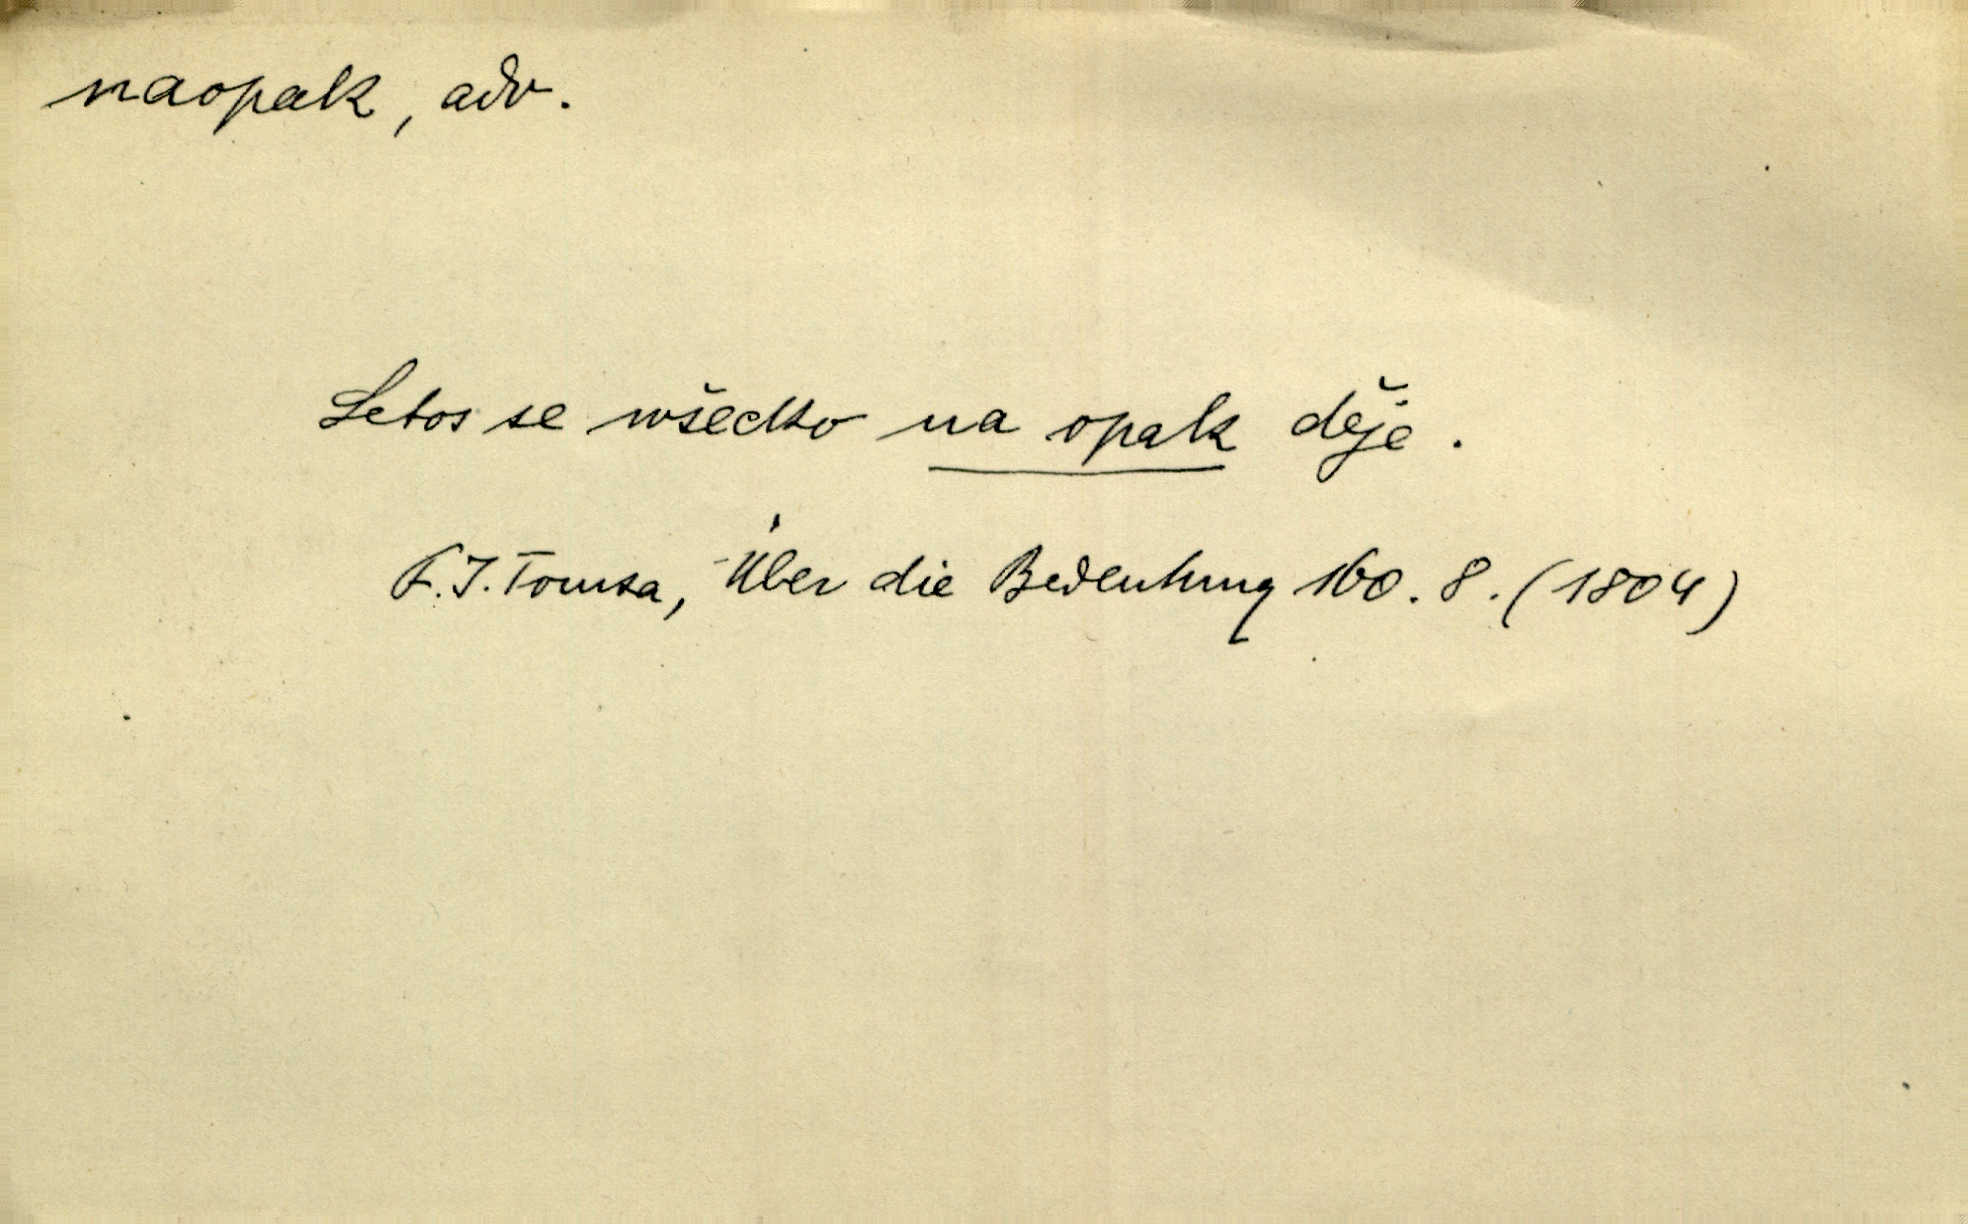 naopak, adv.
Letos se wšecko na opak děje.
F. J. Tomsa, Über die Bedeutung 160. 8. (1804)